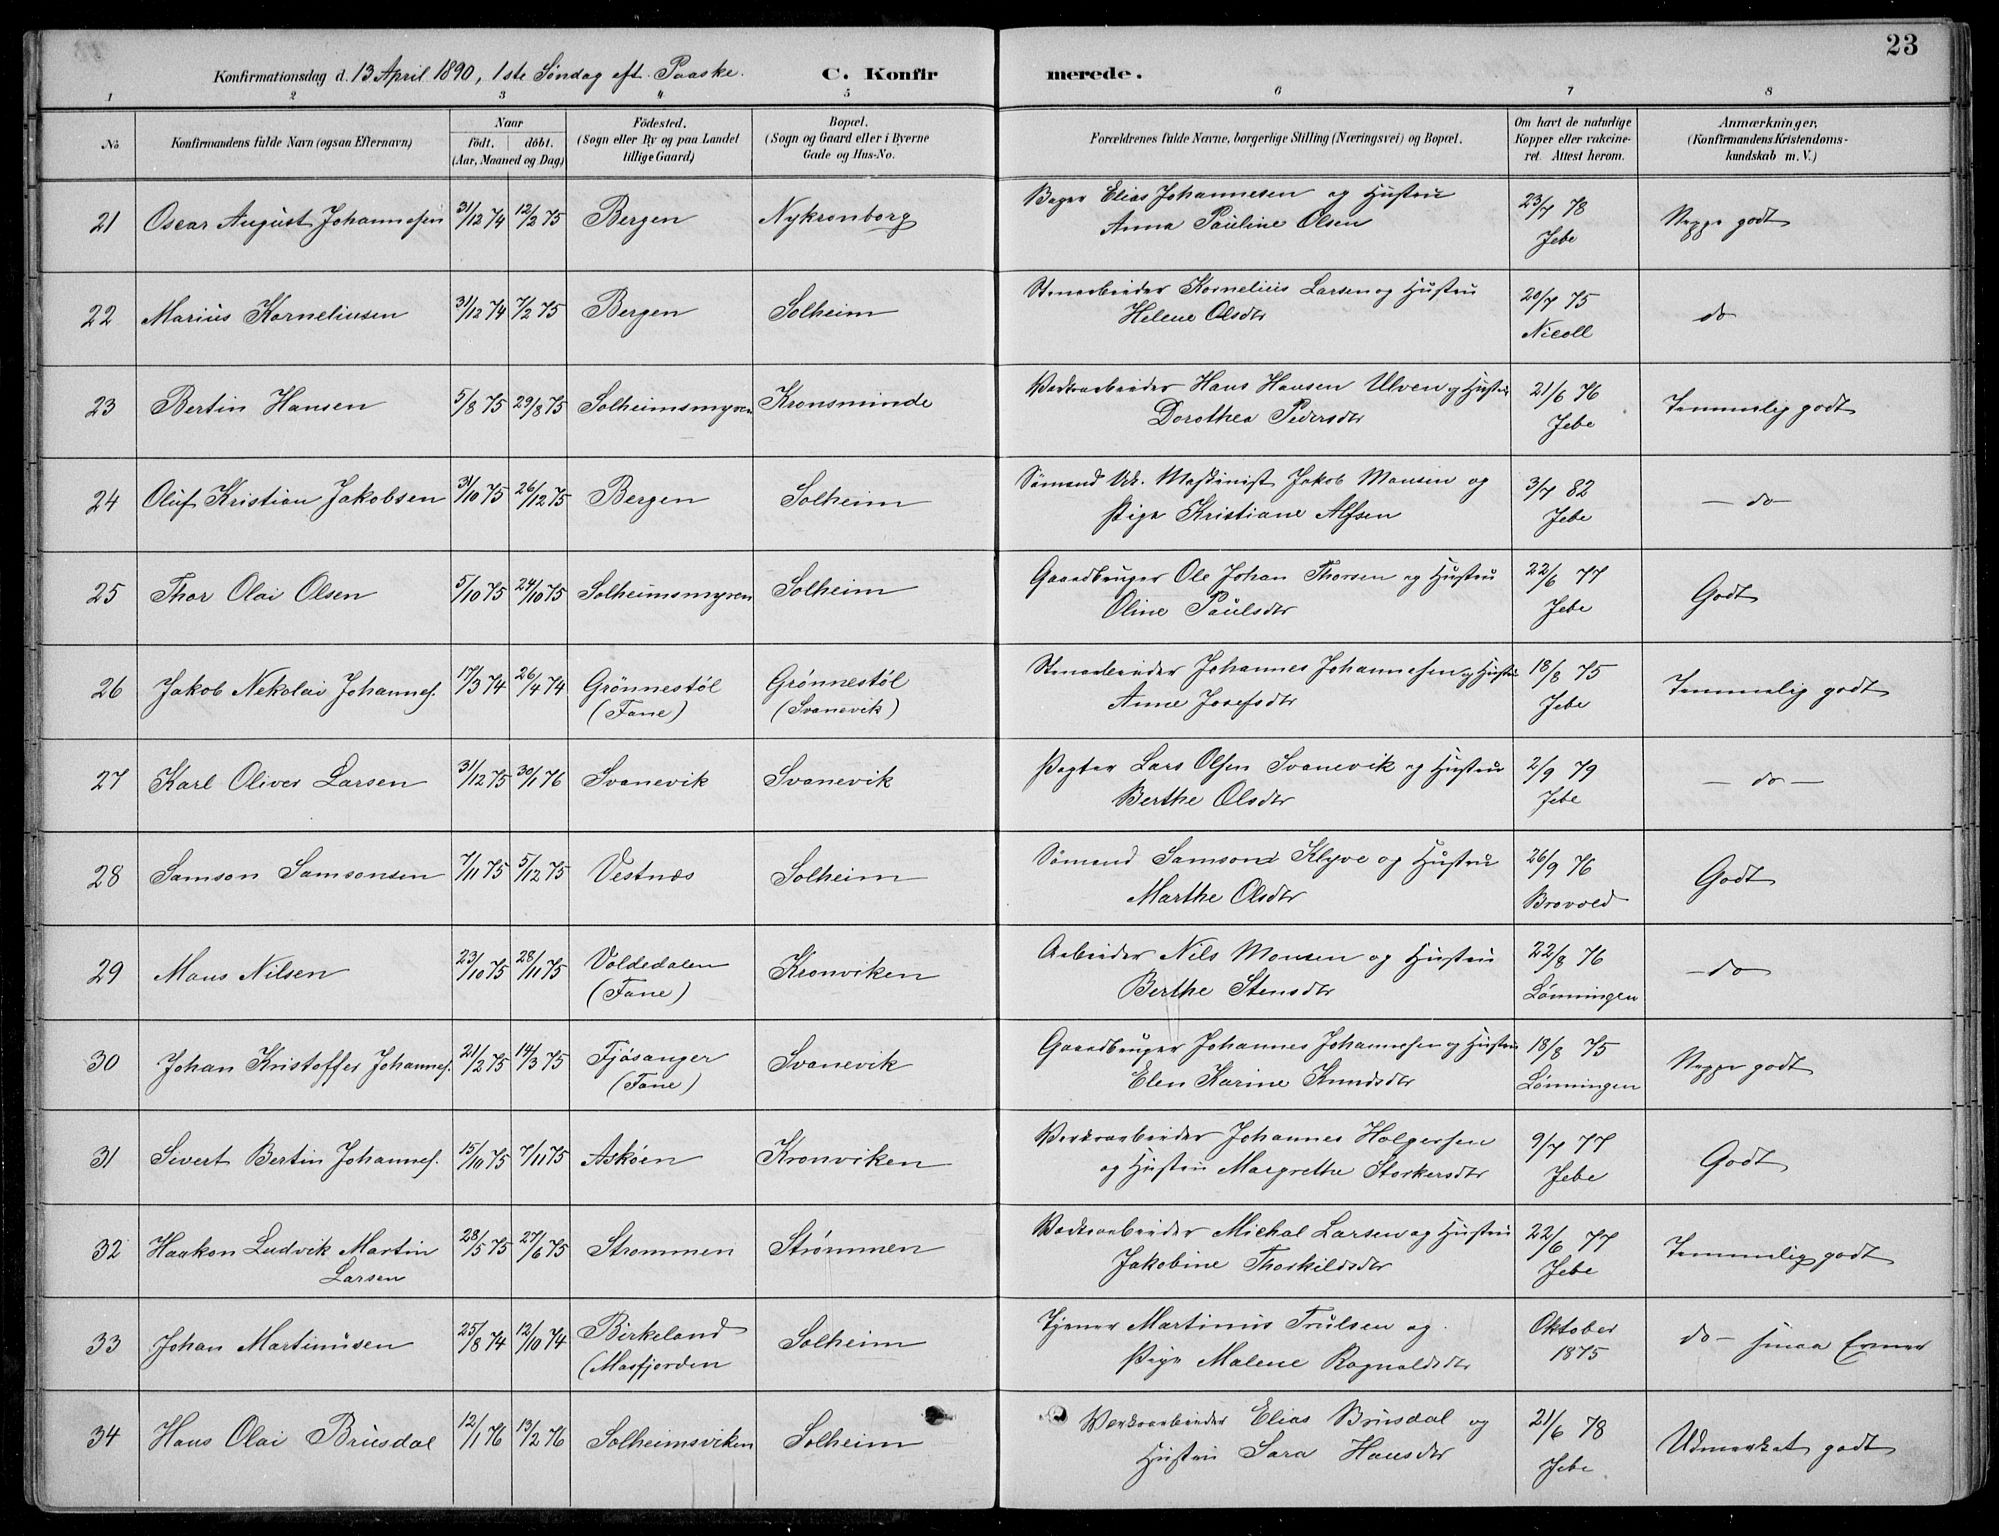 23
Konfirmationsdag d. 13 April 1890, 1ste Søndag eft. Paaske. C. Konfirmerede.
1 2 3 4 5 6 7 8
No
Konfirmandens fulde Navn (ogsaa Efternavn)
Naar
födt. döbt.
(Aar, Maaned og Dag)
Födested.
(Sogn eller By og paa Landet
tillige Gaard)
Bopæl.
(Sogn og Gaard eller i Byerne
Gade og Hus-No.
Forældrenes fulde Navne, borgerlige Stilling (Næringsvei) og Bopæl.
Om havt de naturlige
Kopper eller vakcine-
ret. Attest herom.
Anmærkninger,
(Konfirmandens Kristendoms-
kundskab m. V.)
21 Oscar August Johannesen 31/12 74 12/2 75 Bergen Nykronborg Bager Elias Johannesen og Hustru
Anna Pauline Olsen 23/7 78
Jebe Neppe godt
22 Marius Korneliusen 31/12 74 7/2 75 Bergen Solheim Stenarbeider Kornelius Larsen og Hustru
Helene Olsdtr 20/7 75
Nicoll do
23 Bertin Hansen 5/8 75 29/8 75 Solheimsmyren Kronsminde Værksarbeider Hans Hansen Ulven og Hustru
Dorothea Pedersdtr 21/6 76
Jebe Temmelig godt
24 Oluf Kristian Jakobsen 31/10 75 26/12 75 Bergen Solheim Sømand Uk. Maskinist Jakob Monsen og
Pige Kristiane Alfsen 3/7 82
Jebe — do —
25 Thor Olai Olsen 5/10 75 24/10 75 Solheimsmyren Solheim Gaardbruger Ole Johan Thorsen og Hustru
Oline Paulsdtr 22/6 77
Jebe Godt
26 Jakob Nekolai Johannes. 17/3 74 26/4 74 Grönnestöl
(Fane) Grønnestøl
(Svanevik) Stenarbeider Johannes Johannesen og Hustru
Anne Josefsdtr 18/8 75
Jebe Temmelig godt
27 Karl Oliver Larsen 31/12 75 30/1 76 Svanevik Svanevik Pagter Lars Olsen Svanevik og Hustru
Berthe Olsdtr 2/9 79
Jebe — do —
28 Samson Samsonsen 7/11 75 5/12 75 Vestnæs Solheim Sømand Samson Klyve og Hustru
Marthe Olsdtr 26/9 76
Brovold Godt
29 Mons Nilsen 23/10 75 28/11 75 Voldedalen
(Fane) Kronviken Arbeider Nils Monsen og Hustru
Berthe Stensdtr 22/8 76
Lönningen — do
30 Johan Kristoffer Johannes. 21/2 75 14/3 75 Fjösanger
(Fane) Svanevik Gaardbruger Johannes Johannesen og Hustru
Elen Karine Knudsdtr 18/8 75
Lönningen Neppe godt
31 Sivert Bertin Johannes. 15/10 75 7/11 75 Asköen Kronviken Værksarbeider Johannes Holgersen
og Hustru Margrethe Storkersdtr 9/7 77
Jebe Godt
32 Haakon Ludvik Martin
Larsen 28/5 75 27/6 75 Strommen Strømmen Værksarbeider Mickal Larsen og Hustru
Jakobine Thorkildsdtr 22/6 77
Jebe Temmelig godt
33 Johan Martinusen 25/8 74 12/10 74 Birkeland
(Masfjorden Solheim Tjener Martinus Trulsen og
Pige Malene Ragnaldsdtr Oktober
1875 do — smaa Evner
34 Hans Olai Brusdal 12/1 76 13/2 76 Solheimsviken Solheim Værksarbeider Elias Brusdal og
Hustru Sara Hansdtr 21/6 78
Jebe Udmerket godt